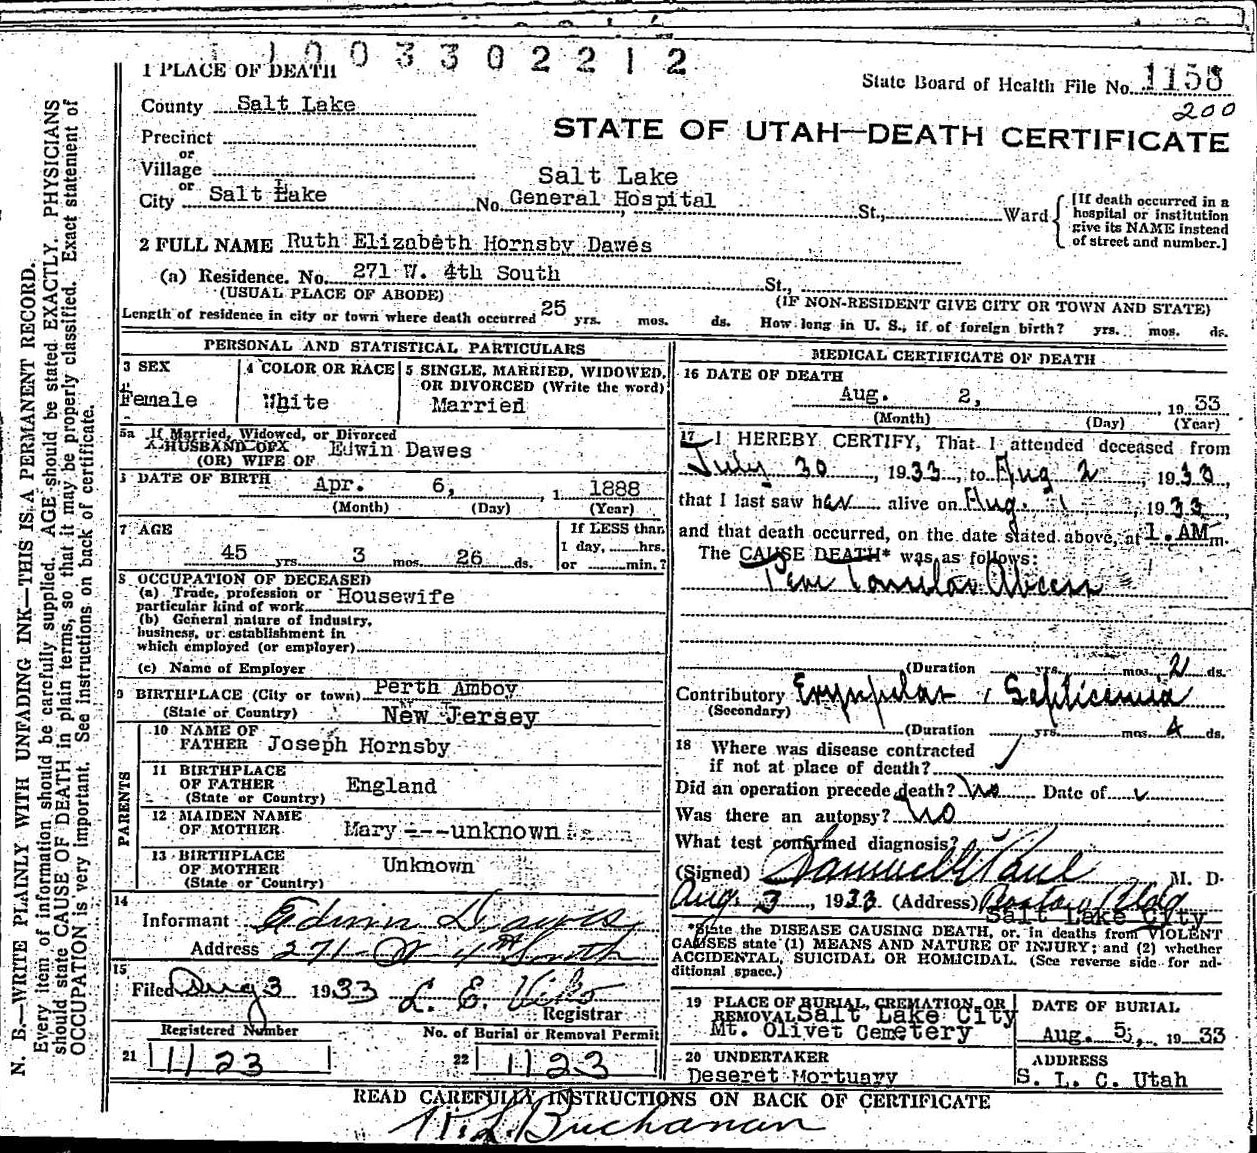 1003302212
1 PLACE OF DEATH
State Board of Health File No. 1158
200
County Salt Lake
STATE OF UTAH—DEATH CERTIFICATE
Precinct
or
Village
or
City Salt Lake No. Salt Lake General Hospital St., Ward
[If death occurred in a hospital or institution give its NAME instead of street and number.]
2 FULL NAME Ruth Elizabeth Hornsby Dawes
(a) Residence. No. 271 W. 4th South St.,
(USUAL PLACE OF ABODE) (IF NON-RESIDENT GIVE CITY OR TOWN AND STATE)
Length of residence in city or town where death occurred 25 yrs. mos. ds. How long in U. S., if of foreign birth? yrs. mos. ds.
PERSONAL AND STATISTICAL PARTICULARS
3 SEX
Female
4 COLOR OR RACE
White
5 SINGLE, MARRIED, WIDOWED, OR DIVORCED (Write the word)
Married
5a If Married, Widowed, or Divorced
HUSBAND OF
(OR) WIFE OF Edwin Dawes
DATE OF BIRTH Apr. 6, 1 1888
(Month) (Day) (Year)
7 AGE
45 yrs. 3 mos. 26 ds.
If LESS than
1 day, hrs.
or min.?
8 OCCUPATION OF DECEASED
(a) Trade, profession or
particular kind of work Housewife
(b) General nature of industry,
business, or establishment in
which employed (or employer)
(c) Name of Employer
9 BIRTHPLACE (City or town) Perth Amboy
(State or Country) New Jersey
PARENTS
10 NAME OF
FATHER Joseph Hornsby
11 BIRTHPLACE
OF FATHER England
(State or Country)
12 MAIDEN NAME
OF MOTHER Mary ---unknown
13 BIRTHPLACE
OF MOTHER Unknown
(State or Country)
14
Informant Edwin Dawes
Address 271 W 4th South
15
Filed Aug 3 1933 L. E. Viko
Registrar
Registered Number No. of Burial or Removal Permit
21 1123 22 1123
MEDICAL CERTIFICATE OF DEATH
16 DATE OF DEATH
Aug. 2, 1933
(Month) (Day) (Year)
17 I HEREBY CERTIFY, That I attended deceased from
July 30, 1933, to Aug 2 1933,
that I last saw her alive on Aug. 1 1933,
and that death occurred, on the date stated above, at 1. AM m.
The CAUSE DEATH* was as follows:
Peri Tonsilar Abcess
(Duration yrs. mos. 2 ds.
Contributory Erysipelas, Septicemia
(Secondary)
(Duration yrs. mos. 4 ds.
18 Where was disease contracted
if not at place of death?
Did an operation precede death? No Date of
Was there an autopsy? No
What test confirmed diagnosis?
(Signed) Samuel Paul M. D.
Aug. 3, 1933 (Address) Boston Bldg
Salt Lake City
*State the DISEASE CAUSING DEATH, or, in deaths from VIOLENT
CAUSES state (1) MEANS AND NATURE OF INJURY; and (2) whether
ACCIDENTAL, SUICIDAL OR HOMICIDAL. (See reverse side for ad-
ditional space.)
19 PLACE OF BURIAL, CREMATION, OR
REMOVAL Salt Lake City
Mt. Olivet Cemetery
DATE OF BURIAL
Aug. 5, 1933
20 UNDERTAKER
Deseret Mortuary
ADDRESS
S. L. C. Utah
READ CAREFULLY INSTRUCTIONS ON BACK OF CERTIFICATE
Buchanan
N. B.—WRITE PLAINLY WITH UNFADING INK—THIS IS A PERMANENT RECORD.
Every item of information should be carefully supplied. AGE should be stated EXACTLY. PHYSICIANS
should state CAUSE OF DEATH in plain terms, so that it may be properly classified. Exact statement of
OCCUPATION is very important. See instructions on back of certificate.